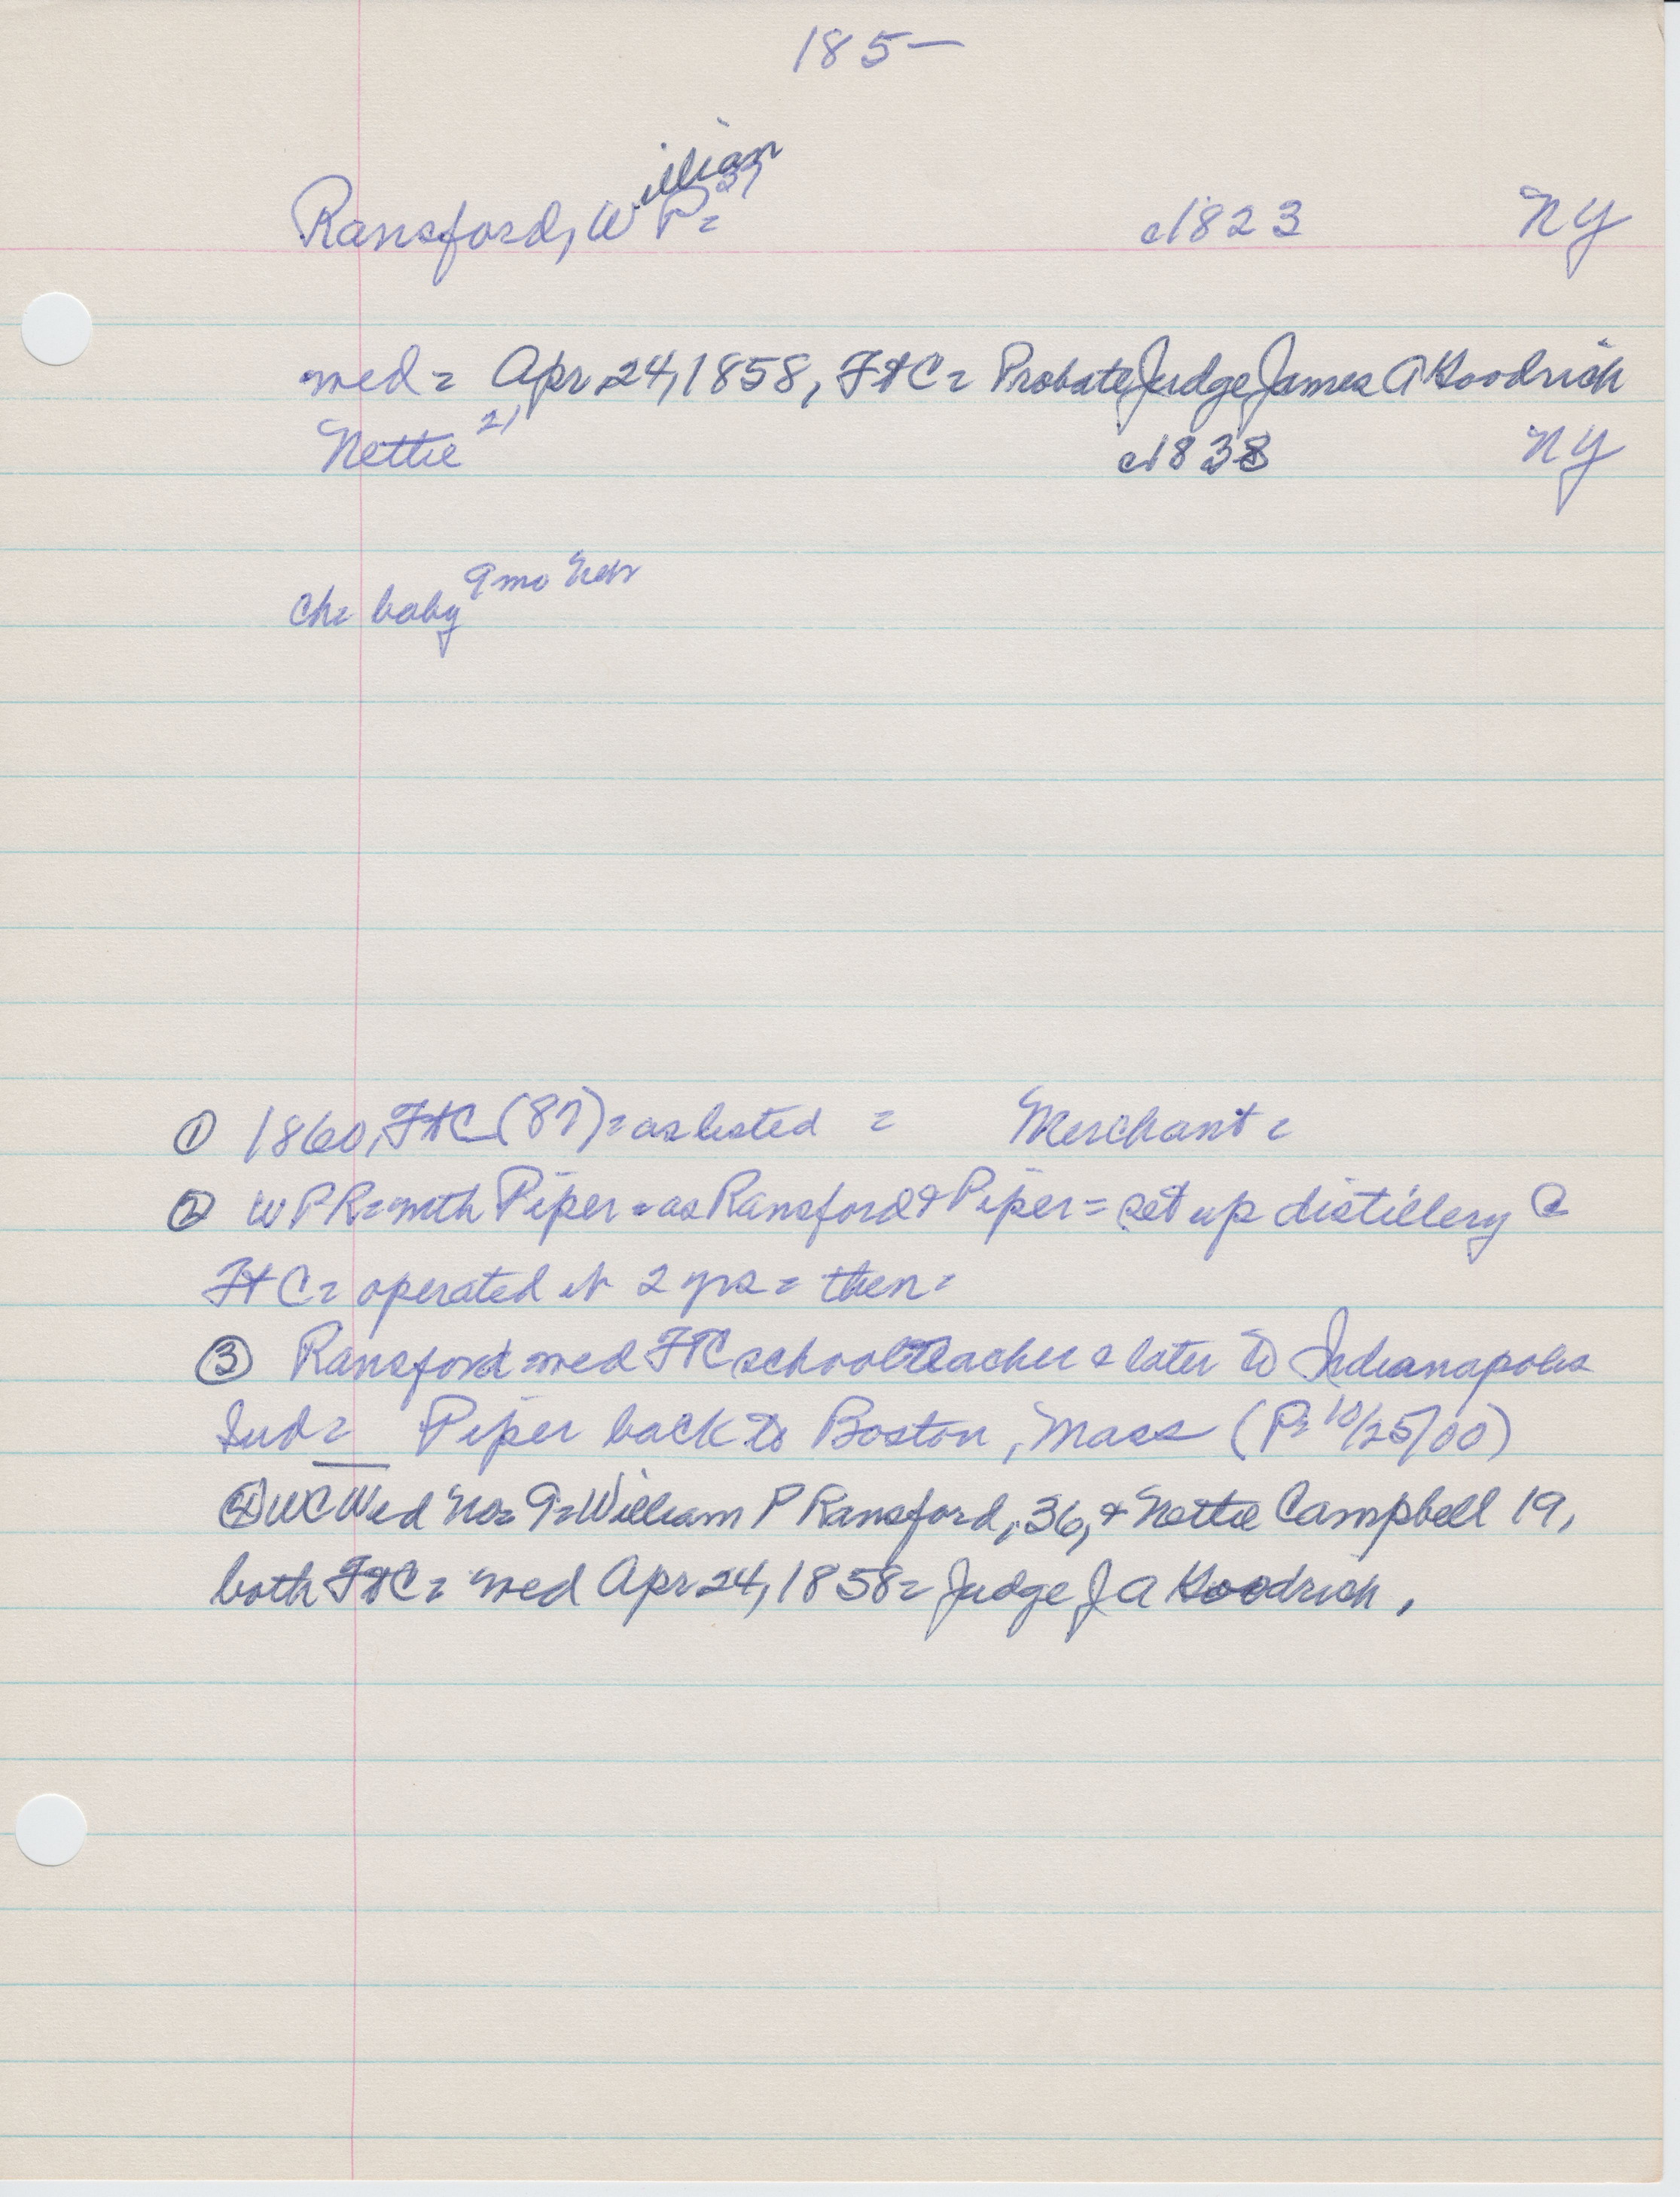 185–
Ransford, William P= 37 c1823 NY
med= Apr 24, 1858, FtC= Probate Judge James A Goodrich
Nettie 21 c1838 NY
Ch= baby 9mo Nebr
① 1860, FtC (87)= as listed = Merchant=
② WPR= with Piper= as Ransford & Piper= set up distillery @
FtC= operated it 2 yrs= then=
③ Ransford med FtC schoolteacher & later to Indianapolis
Ind= Piper back to Boston, Mass (P= 10/25/00)
④ WC Wed No= 9= William P Ransford, 36, & Nettie Campbell 19,
both FtC= med Apr 24, 1858= Judge J A Goodrich,